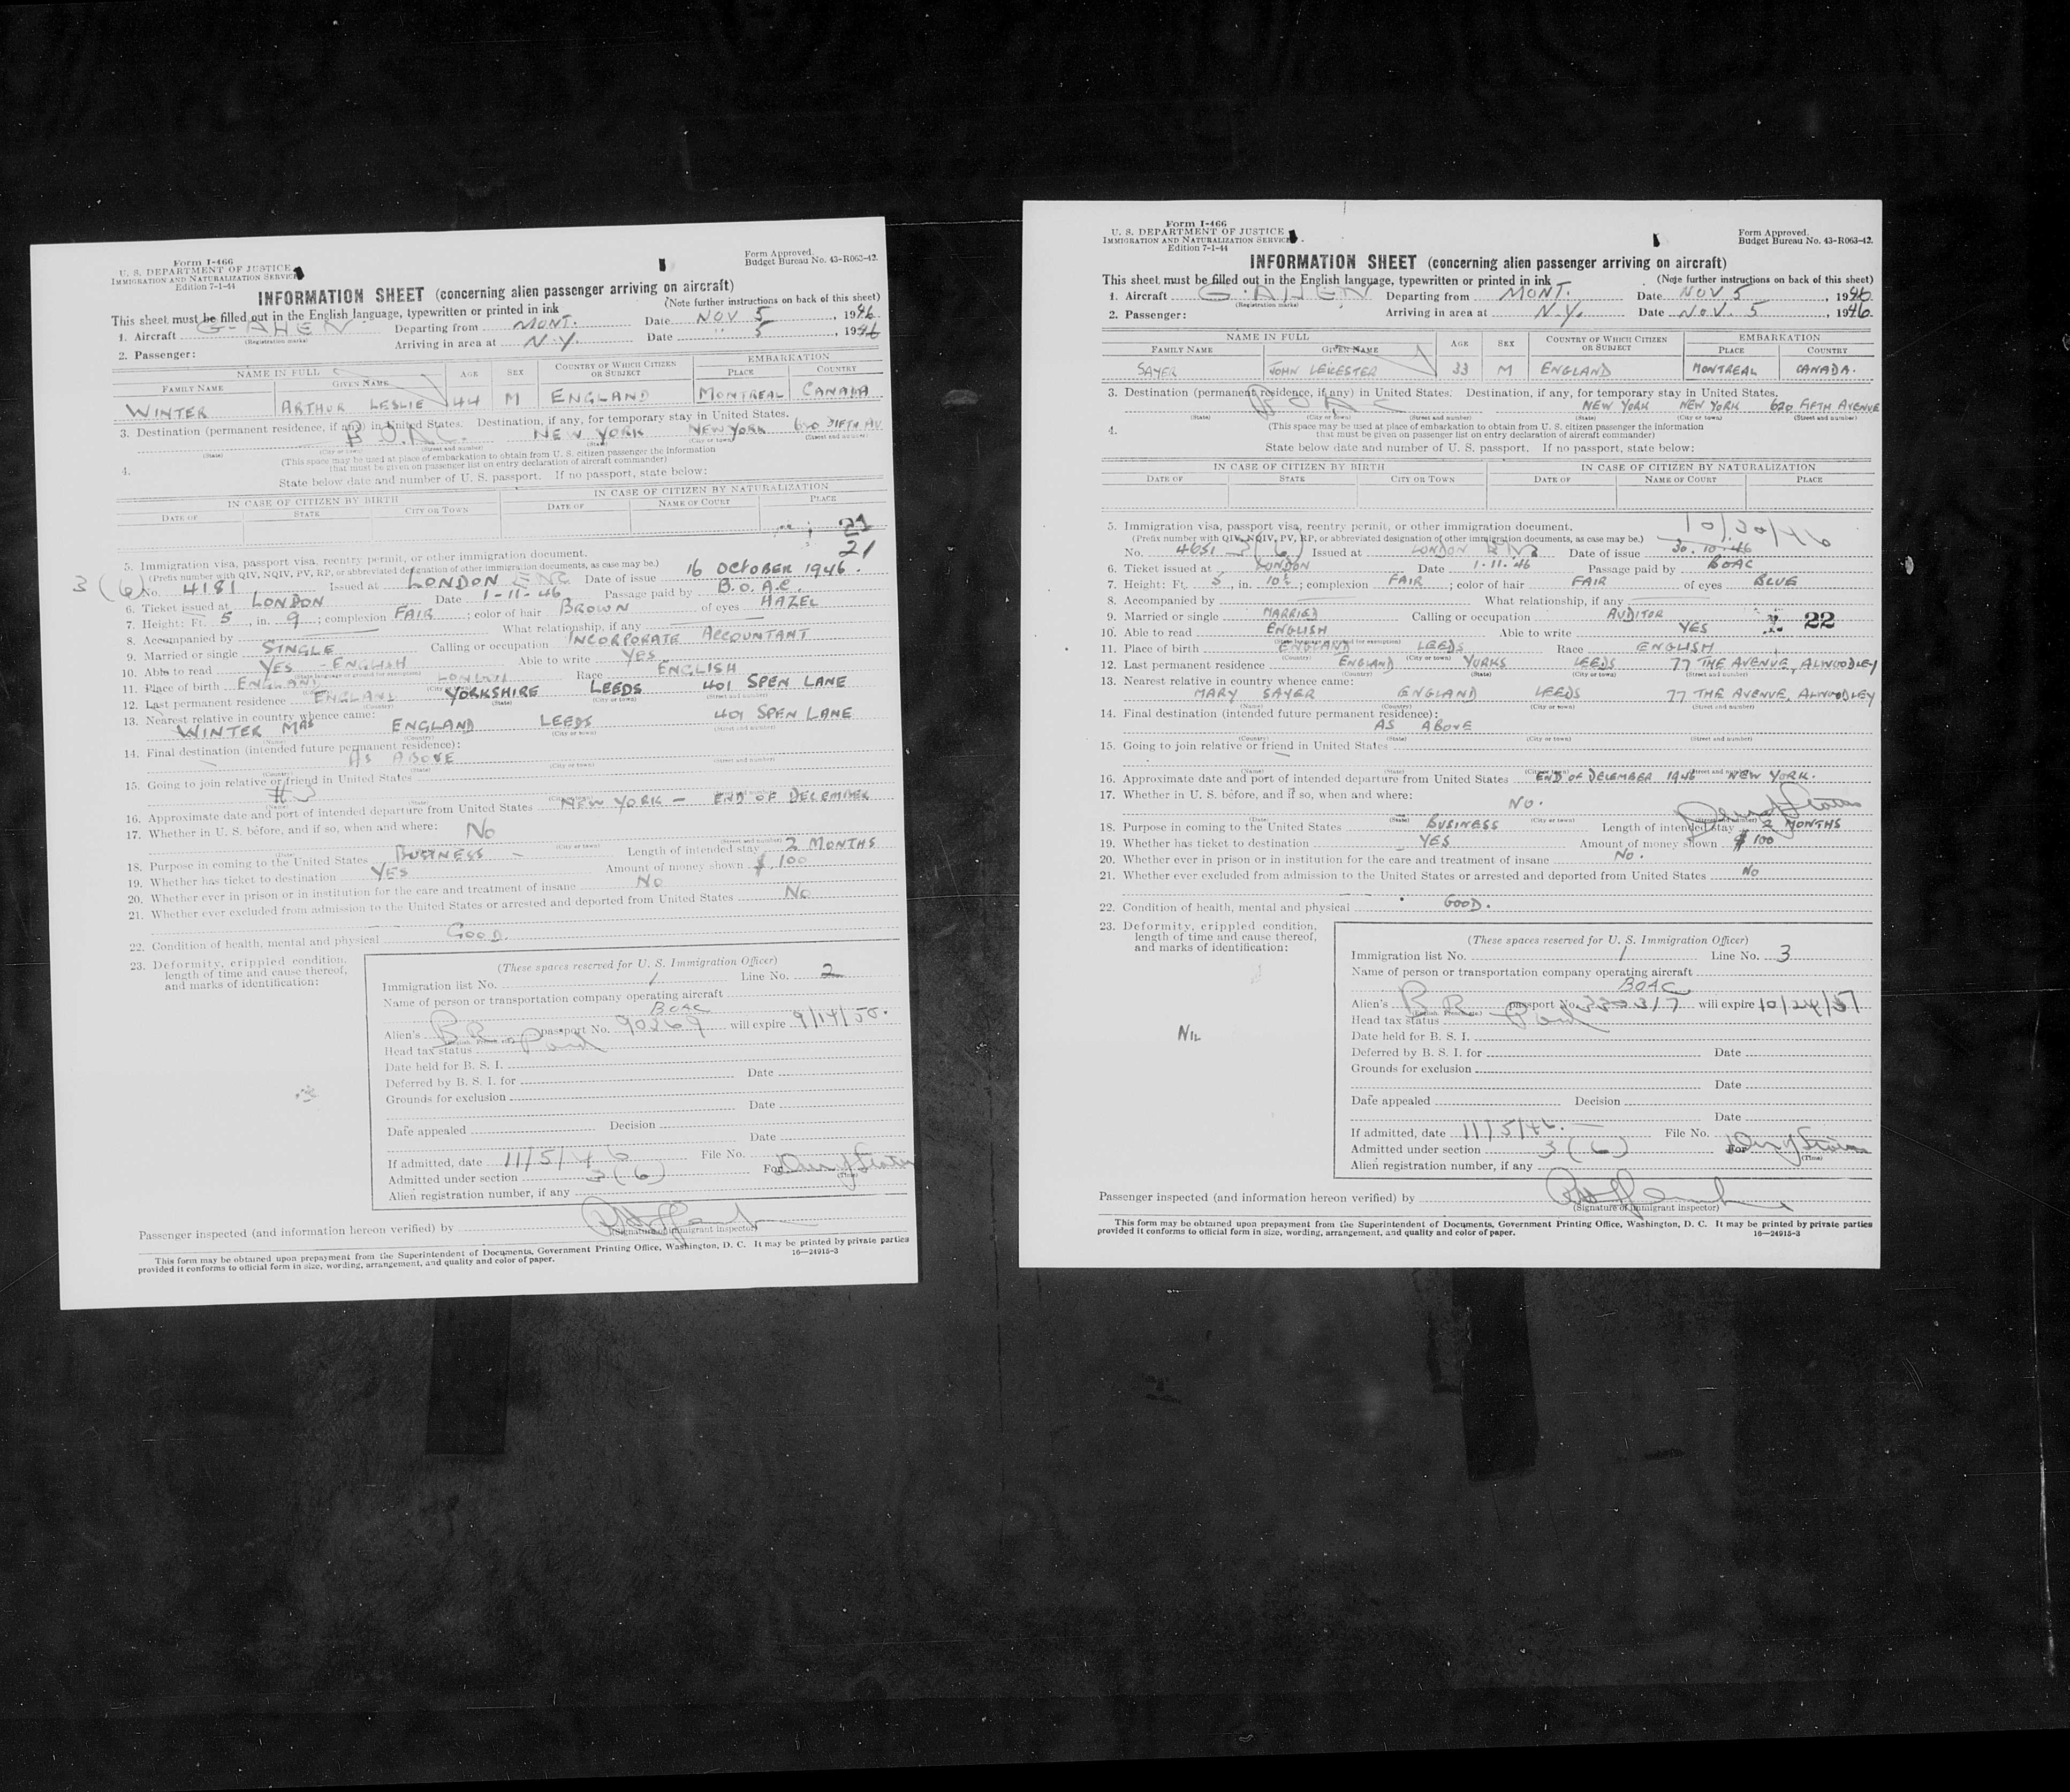 Form I-466
U. S. DEPARTMENT OF JUSTICE
IMMIGRATION AND NATURALIZATION SERVICE
Edition 7-1-44
Form Approved.
Budget Bureau No. 43-R063-42.
INFORMATION SHEET (concerning alien passenger arriving on aircraft)
This sheet must be filled out in the English language, typewritten or printed in ink (Note further instructions on back of this sheet)
1. Aircraft G-AHEN Departing from MONT. Date NOV 5, 1946
(Registration marks)
2. Passenger: Arriving in area at N.Y. Date " 5, 1946
NAME IN FULL AGE SEX COUNTRY OF WHICH CITIZEN OR SUBJECT EMBARKATION
FAMILY NAME GIVEN NAME PLACE COUNTRY
WINTER ARTHUR LESLIE 44 M ENGLAND MONTREAL CANADA
3. Destination (permanent residence, if any) in United States. Destination, if any, for temporary stay in United States.
B.O.A.C. NEW YORK NEW YORK 620 FIFTH AV
(State) (City or town) (Street and number) (State) (City or town) (Street and number)
4. (This space may be used at place of embarkation to obtain from U. S. citizen passenger the information
that must be given on passenger list on entry declaration of aircraft commander)
State below date and number of U. S. passport. If no passport, state below:
IN CASE OF CITIZEN BY BIRTH IN CASE OF CITIZEN BY NATURALIZATION
DATE OF STATE CITY OR TOWN DATE OF NAME OF COURT PLACE
21
21
5. Immigration visa, passport visa, reentry permit, or other immigration document.
(Prefix number with QIV, NQIV, PV, RP, or abbreviated designation of other immigration documents, as case may be.)
3(6) No. 4181 Issued at LONDON ENG Date of issue 16 OCTOBER 1946.
6. Ticket issued at LONDON Date 1-11-46 Passage paid by B.O.A.C.
7. Height: Ft. 5, in. 9; complexion FAIR; color of hair BROWN of eyes HAZEL
8. Accompanied by What relationship, if any
9. Married or single SINGLE Calling or occupation INCORPORATE ACCOUNTANT
10. Able to read YES - ENGLISH Able to write YES
(State language or ground for exemption)
11. Place of birth ENGLAND LONDON Race ENGLISH
12. Last permanent residence ENGLAND YORKSHIRE LEEDS 401 SPEN LANE
(Country) (State) (City or town) (Street and number)
13. Nearest relative in country whence came:
WINTER MRS ENGLAND LEEDS 401 SPEN LANE
(Name) (Country) (City or town) (Street and number)
14. Final destination (intended future permanent residence):
AS ABOVE
(Country) (State) (City or town) (Street and number)
15. Going to join relative or friend in United States
16. Approximate date and port of intended departure from United States NEW YORK - END OF DECEMBER
17. Whether in U. S. before, and if so, when and where: NO
18. Purpose in coming to the United States BUSINESS - Length of intended stay 2 MONTHS
19. Whether has ticket to destination YES Amount of money shown $ 100
20. Whether ever in prison or in institution for the care and treatment of insane NO
21. Whether ever excluded from admission to the United States or arrested and deported from United States NO
22. Condition of health, mental and physical GOOD.
23. Deformity, crippled condition, length of time and cause thereof, and marks of identification:
(These spaces reserved for U. S. Immigration Officer)
Immigration list No. 1 Line No. 2
Name of person or transportation company operating aircraft
BOAC
Alien's BR passport No. 90269 will expire 9/14/50.
Head tax status Paid
Date held for B. S. I.
Deferred by B. S. I. for Date
Grounds for exclusion
Date
Date appealed Decision
Date
If admitted, date 11/5/46 File No.
Admitted under section 3(6) For
(Time)
Alien registration number, if any
Passenger inspected (and information hereon verified) by
(Signature of immigrant inspector)
This form may be obtained upon prepayment from the Superintendent of Documents, Government Printing Office, Washington, D. C. It may be printed by private parties
provided it conforms to official form in size, wording, arrangement, and quality and color of paper. 16—24915-3
Form I-466
U. S. DEPARTMENT OF JUSTICE
IMMIGRATION AND NATURALIZATION SERVICE
Edition 7-1-44
Form Approved.
Budget Bureau No. 43-R063-42.
INFORMATION SHEET (concerning alien passenger arriving on aircraft)
This sheet must be filled out in the English language, typewritten or printed in ink (Note further instructions on back of this sheet)
1. Aircraft G-AHEN Departing from MONT. Date NOV 5, 1946
(Registration marks)
2. Passenger: Arriving in area at N.Y. Date NOV. 5, 1946.
NAME IN FULL AGE SEX COUNTRY OF WHICH CITIZEN OR SUBJECT EMBARKATION
FAMILY NAME GIVEN NAME PLACE COUNTRY
SAYER JOHN LEICESTER 33 M ENGLAND MONTREAL CANADA.
3. Destination (permanent residence, if any) in United States. Destination, if any, for temporary stay in United States.
BOAC NEW YORK NEW YORK 620 FIFTH AVENUE
(State) (City or town) (Street and number) (State) (City or town) (Street and number)
4. (This space may be used at place of embarkation to obtain from U. S. citizen passenger the information
that must be given on passenger list on entry declaration of aircraft commander)
State below date and number of U. S. passport. If no passport, state below:
IN CASE OF CITIZEN BY BIRTH IN CASE OF CITIZEN BY NATURALIZATION
DATE OF STATE CITY OR TOWN DATE OF NAME OF COURT PLACE
5. Immigration visa, passport visa, reentry permit, or other immigration document. 10/30/46
(Prefix number with QIV, NQIV, PV, RP, or abbreviated designation of other immigration documents, as case may be.)
No. 4651 3(6) Issued at LONDON Date of issue 30.10.46
6. Ticket issued at LONDON Date 1.11.46 Passage paid by BOAC
7. Height: Ft. 5, in. 10½; complexion FAIR; color of hair FAIR of eyes BLUE
8. Accompanied by What relationship, if any
9. Married or single MARRIED Calling or occupation AUDITOR
22
10. Able to read ENGLISH Able to write YES
(State language or ground for exemption)
11. Place of birth ENGLAND LEEDS Race ENGLISH
(Country) (City or town)
12. Last permanent residence ENGLAND YORKS LEEDS 77 THE AVENUE, ALWOODLEY
(Country) (State) (City or town) (Street and number)
13. Nearest relative in country whence came:
MARY SAYER ENGLAND LEEDS 77 THE AVENUE, ALWOODLEY
(Name) (Country) (City or town) (Street and number)
14. Final destination (intended future permanent residence):
AS ABOVE
(Country) (State) (City or town) (Street and number)
15. Going to join relative or friend in United States
(Name) (State) (City or town) (Street and number)
16. Approximate date and port of intended departure from United States END OF DECEMBER 1946 NEW YORK.
17. Whether in U. S. before, and if so, when and where: NO.
(Date) (State) (City or town) (Street and number)
18. Purpose in coming to the United States BUSINESS Length of intended stay 2 MONTHS
19. Whether has ticket to destination YES Amount of money shown $ 100
20. Whether ever in prison or in institution for the care and treatment of insane NO.
21. Whether ever excluded from admission to the United States or arrested and deported from United States NO
22. Condition of health, mental and physical GOOD.
23. Deformity, crippled condition, length of time and cause thereof, and marks of identification:
NIL
(These spaces reserved for U. S. Immigration Officer)
Immigration list No. 1 Line No. 3
Name of person or transportation company operating aircraft
BOAC
Alien's BR passport No. will expire 10/24/51
Head tax status Paid
Date held for B. S. I.
Deferred by B. S. I. for Date
Grounds for exclusion
Date
Date appealed Decision
Date
If admitted, date 11/5/46. File No.
Admitted under section 3(6) For
(Time)
Alien registration number, if any
Passenger inspected (and information hereon verified) by
(Signature of immigrant inspector)
This form may be obtained upon prepayment from the Superintendent of Documents, Government Printing Office, Washington, D. C. It may be printed by private parties
provided it conforms to official form in size, wording, arrangement, and quality and color of paper. 16—24915-3